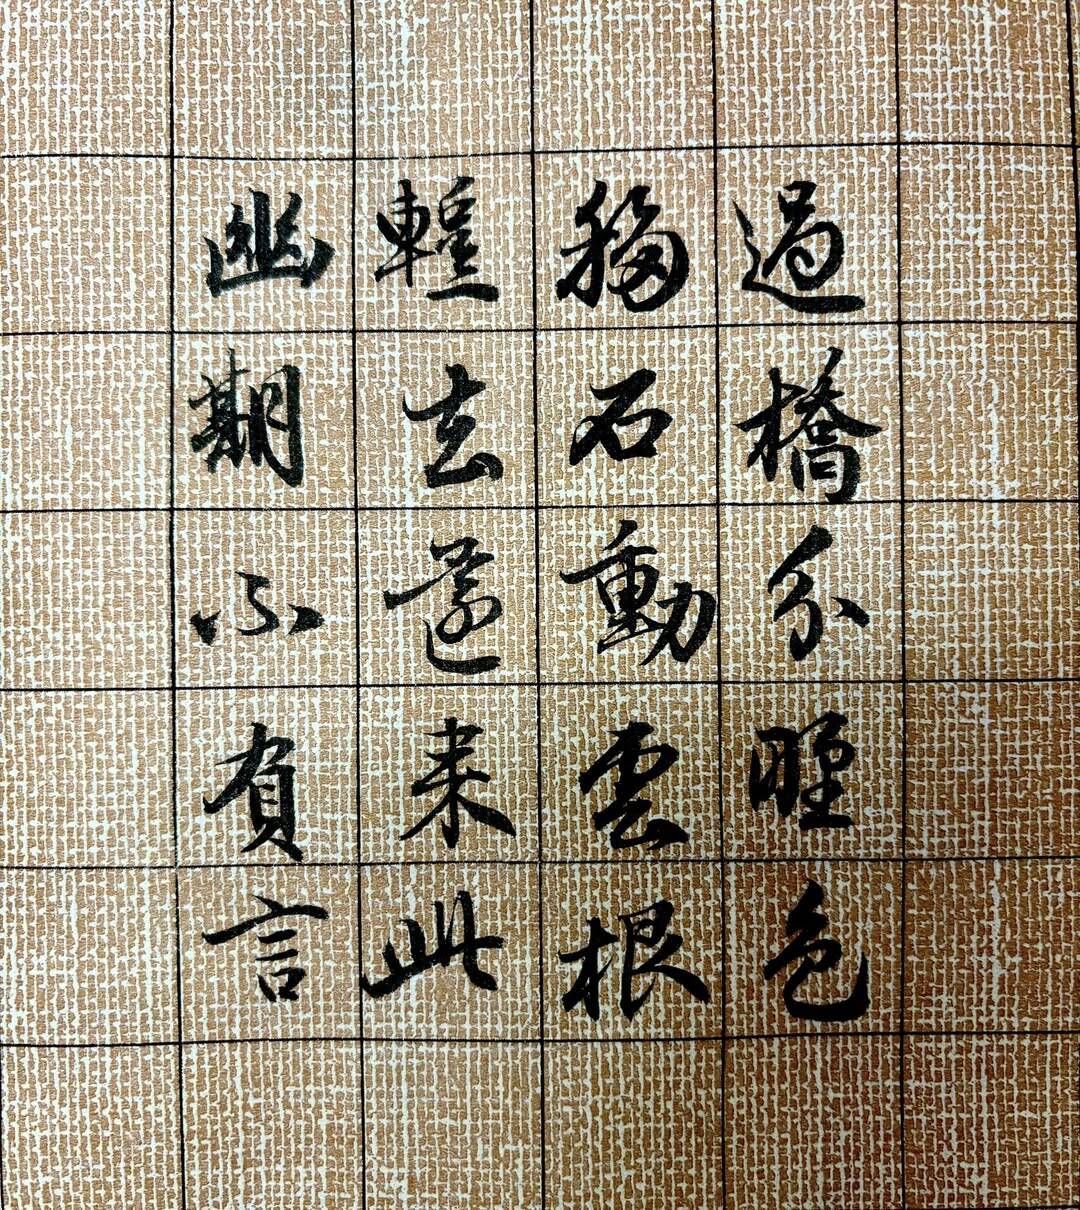 過橋分野色
移石動雲根
暫去還來此
幽期不負言